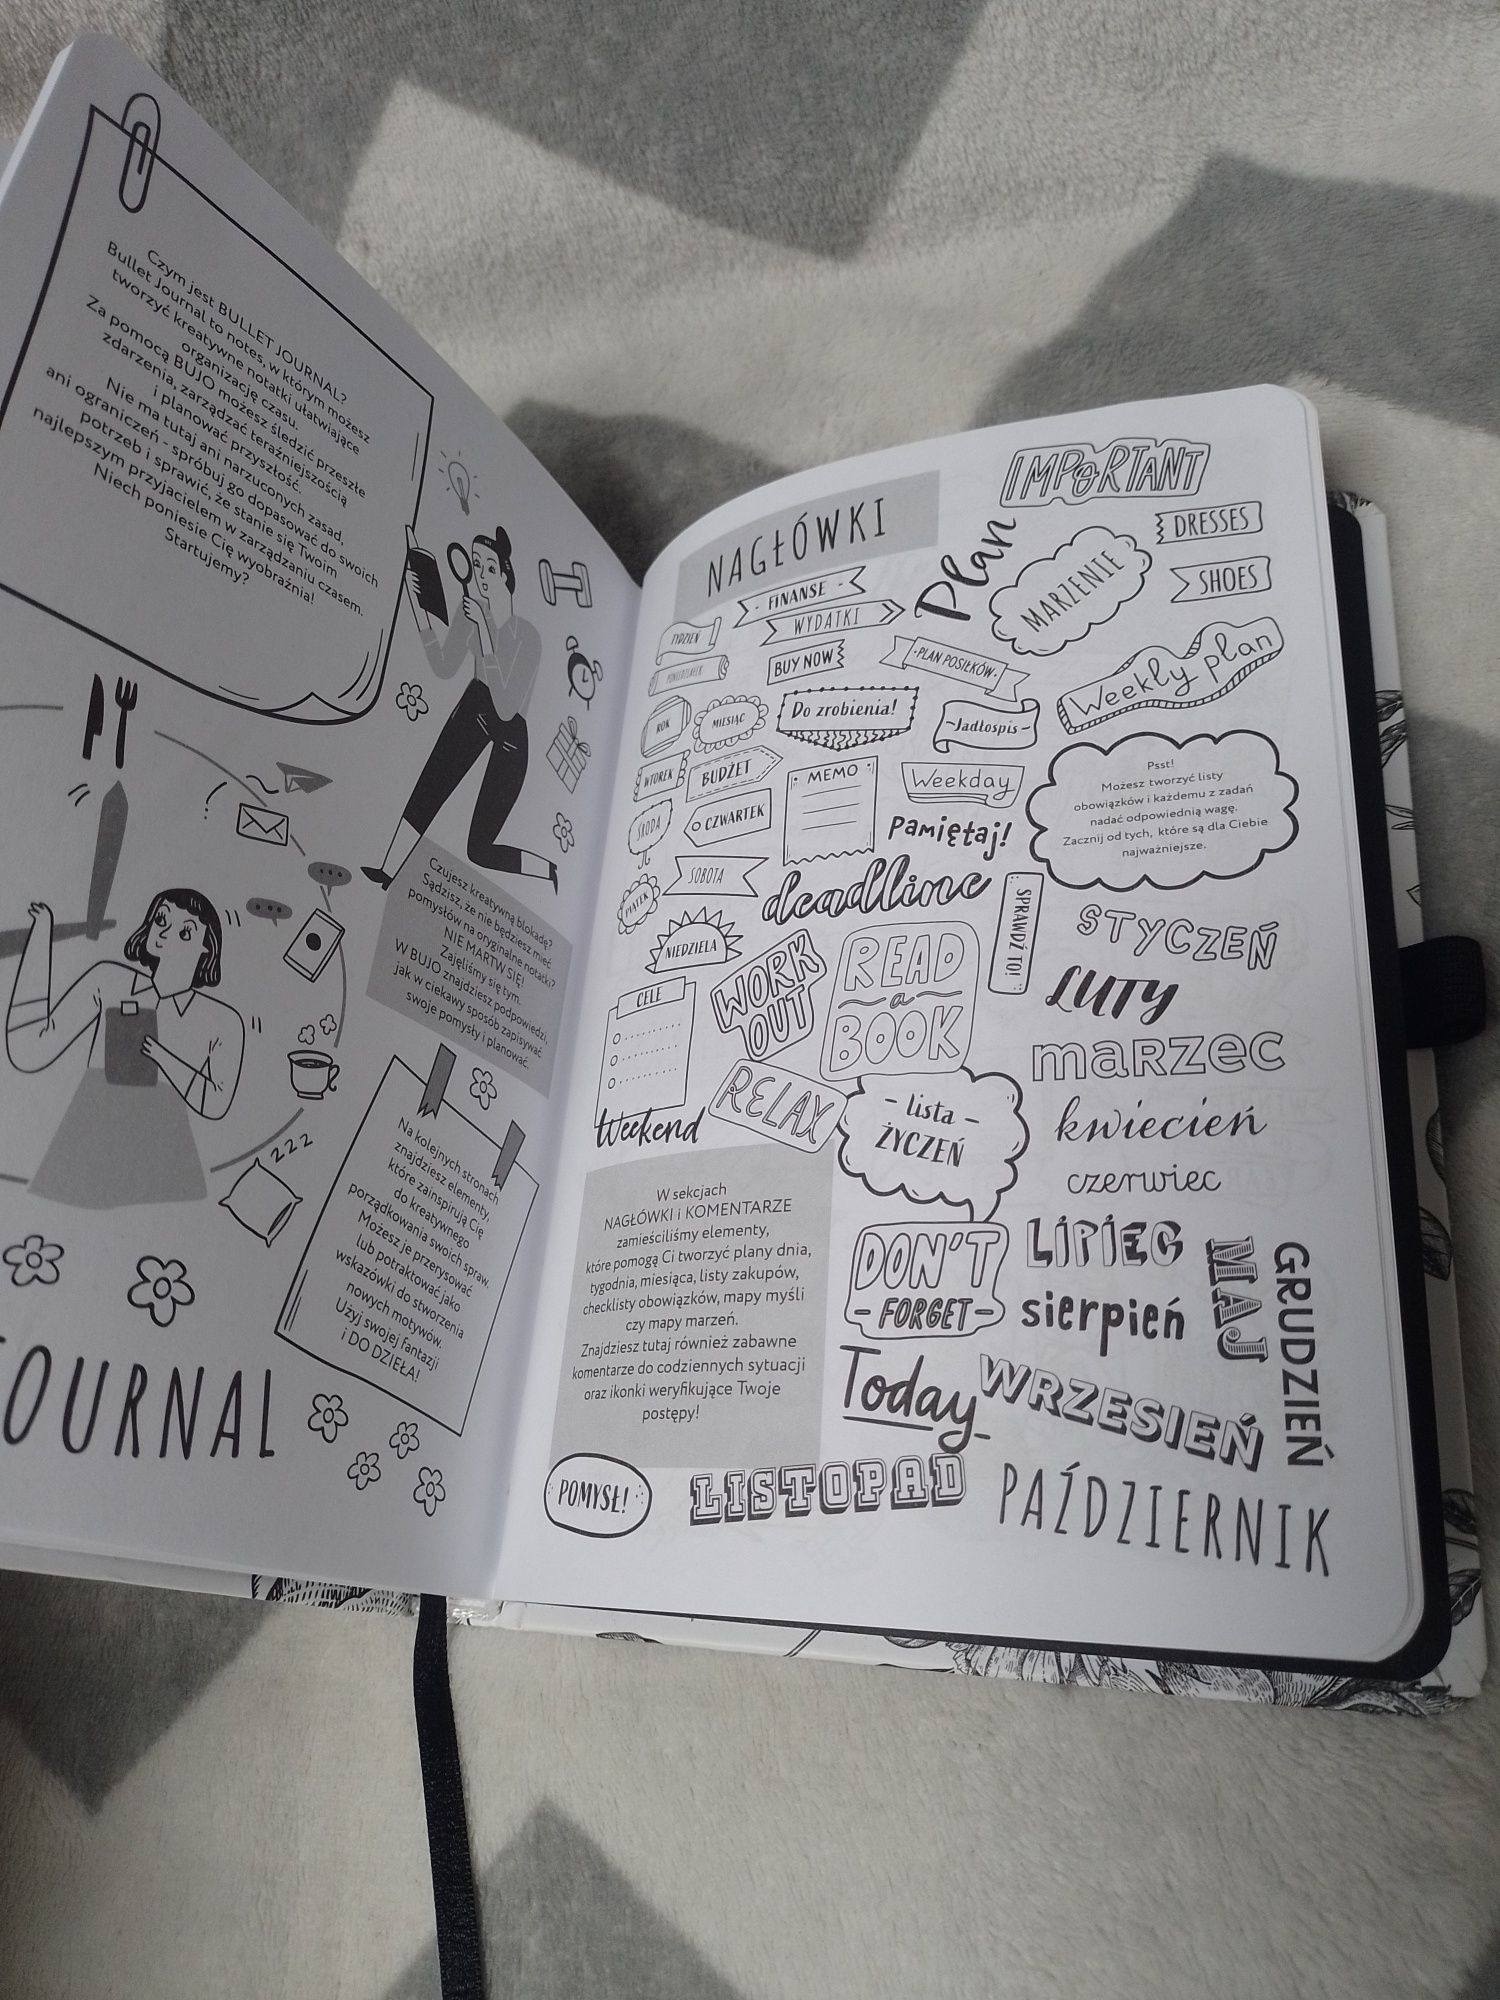 Czym jest BULLET JOURNAL?
Bullet Journal to notes, w którym możesz
tworzyć kreatywne notatki ułatwiające
organizację czasu.
Za pomocą BUJO możesz śledzić przeszłe
zdarzenia, zarządzać teraźniejszością
i planować przyszłość.
Nie ma tutaj ani narzuconych zasad,
ani ograniczeń - spróbuj go dopasować do swoich
potrzeb i sprawić, że stanie się Twoim
najlepszym przyjacielem w zarządzaniu czasem.
Niech poniesie Cię wyobraźnia!
Startujemy?
Czujesz kreatywną blokadę?
Sądzisz, że nie będziesz mieć
pomysłów na oryginalne notatki?
NIE MARTW SIĘ!
Zajęliśmy się tym.
W BUJO znajdziesz podpowiedzi,
jak w ciekawy sposób zapisywać
swoje pomysły i planować.
zzz
Na kolejnych stronach
znajdziesz elementy,
które zainspirują Cię
do kreatywnego
porządkowania swoich spraw.
Możesz je przerysować
lub potraktować jako
wskazówki do stworzenia
nowych motywów.
Użyj swojej fantazji
i DO DZIEŁA!
JOURNAL
NAGŁÓWKI
IMPORTANT
Plan
MARZENIE
DRESSES
SHOES
FINANSE
WYDATKI
TYDZIEŃ
PONIEDZIAŁEK
BUY NOW
PLAN POSIŁKÓW
Weekly plan
ROK
MIESIĄC
Do zrobienia!
-Jadłospis-
WTOREK
BUDŻET
MEMO
Weekday
Psst!
Możesz tworzyć listy
obowiązków i każdemu z zadań
nadać odpowiednią wagę.
Zacznij od tych, które są dla Ciebie
najważniejsze.
ŚRODA
CZWARTEK
Pamiętaj!
SOBOTA
deadline
PIĄTEK
NIEDZIELA
SPRAWDŹ TO!
STYCZEŃ
WORK
OUT
READ
a
BOOK
LUTY
CELE
marzec
Weekend
RELAX
- lista -
ŻYCZEŃ
kwiecień
czerwiec
W sekcjach
NAGŁÓWKI i KOMENTARZE
zamieściliśmy elementy,
które pomogą Ci tworzyć plany dnia,
tygodnia, miesiąca, listy zakupów,
checklisty obowiązków, mapy myśli
czy mapy marzeń.
Znajdziesz tutaj również zabawne
komentarze do codziennych sytuacji
oraz ikonki weryfikujące Twoje
postępy!
DON'T
- FORGET -
LIPIEC
MAJ
GRUDZIEŃ
sierpień
Today
WRZESIEŃ
POMYSŁ!
LISTOPAD
PAŹDZIERNIK